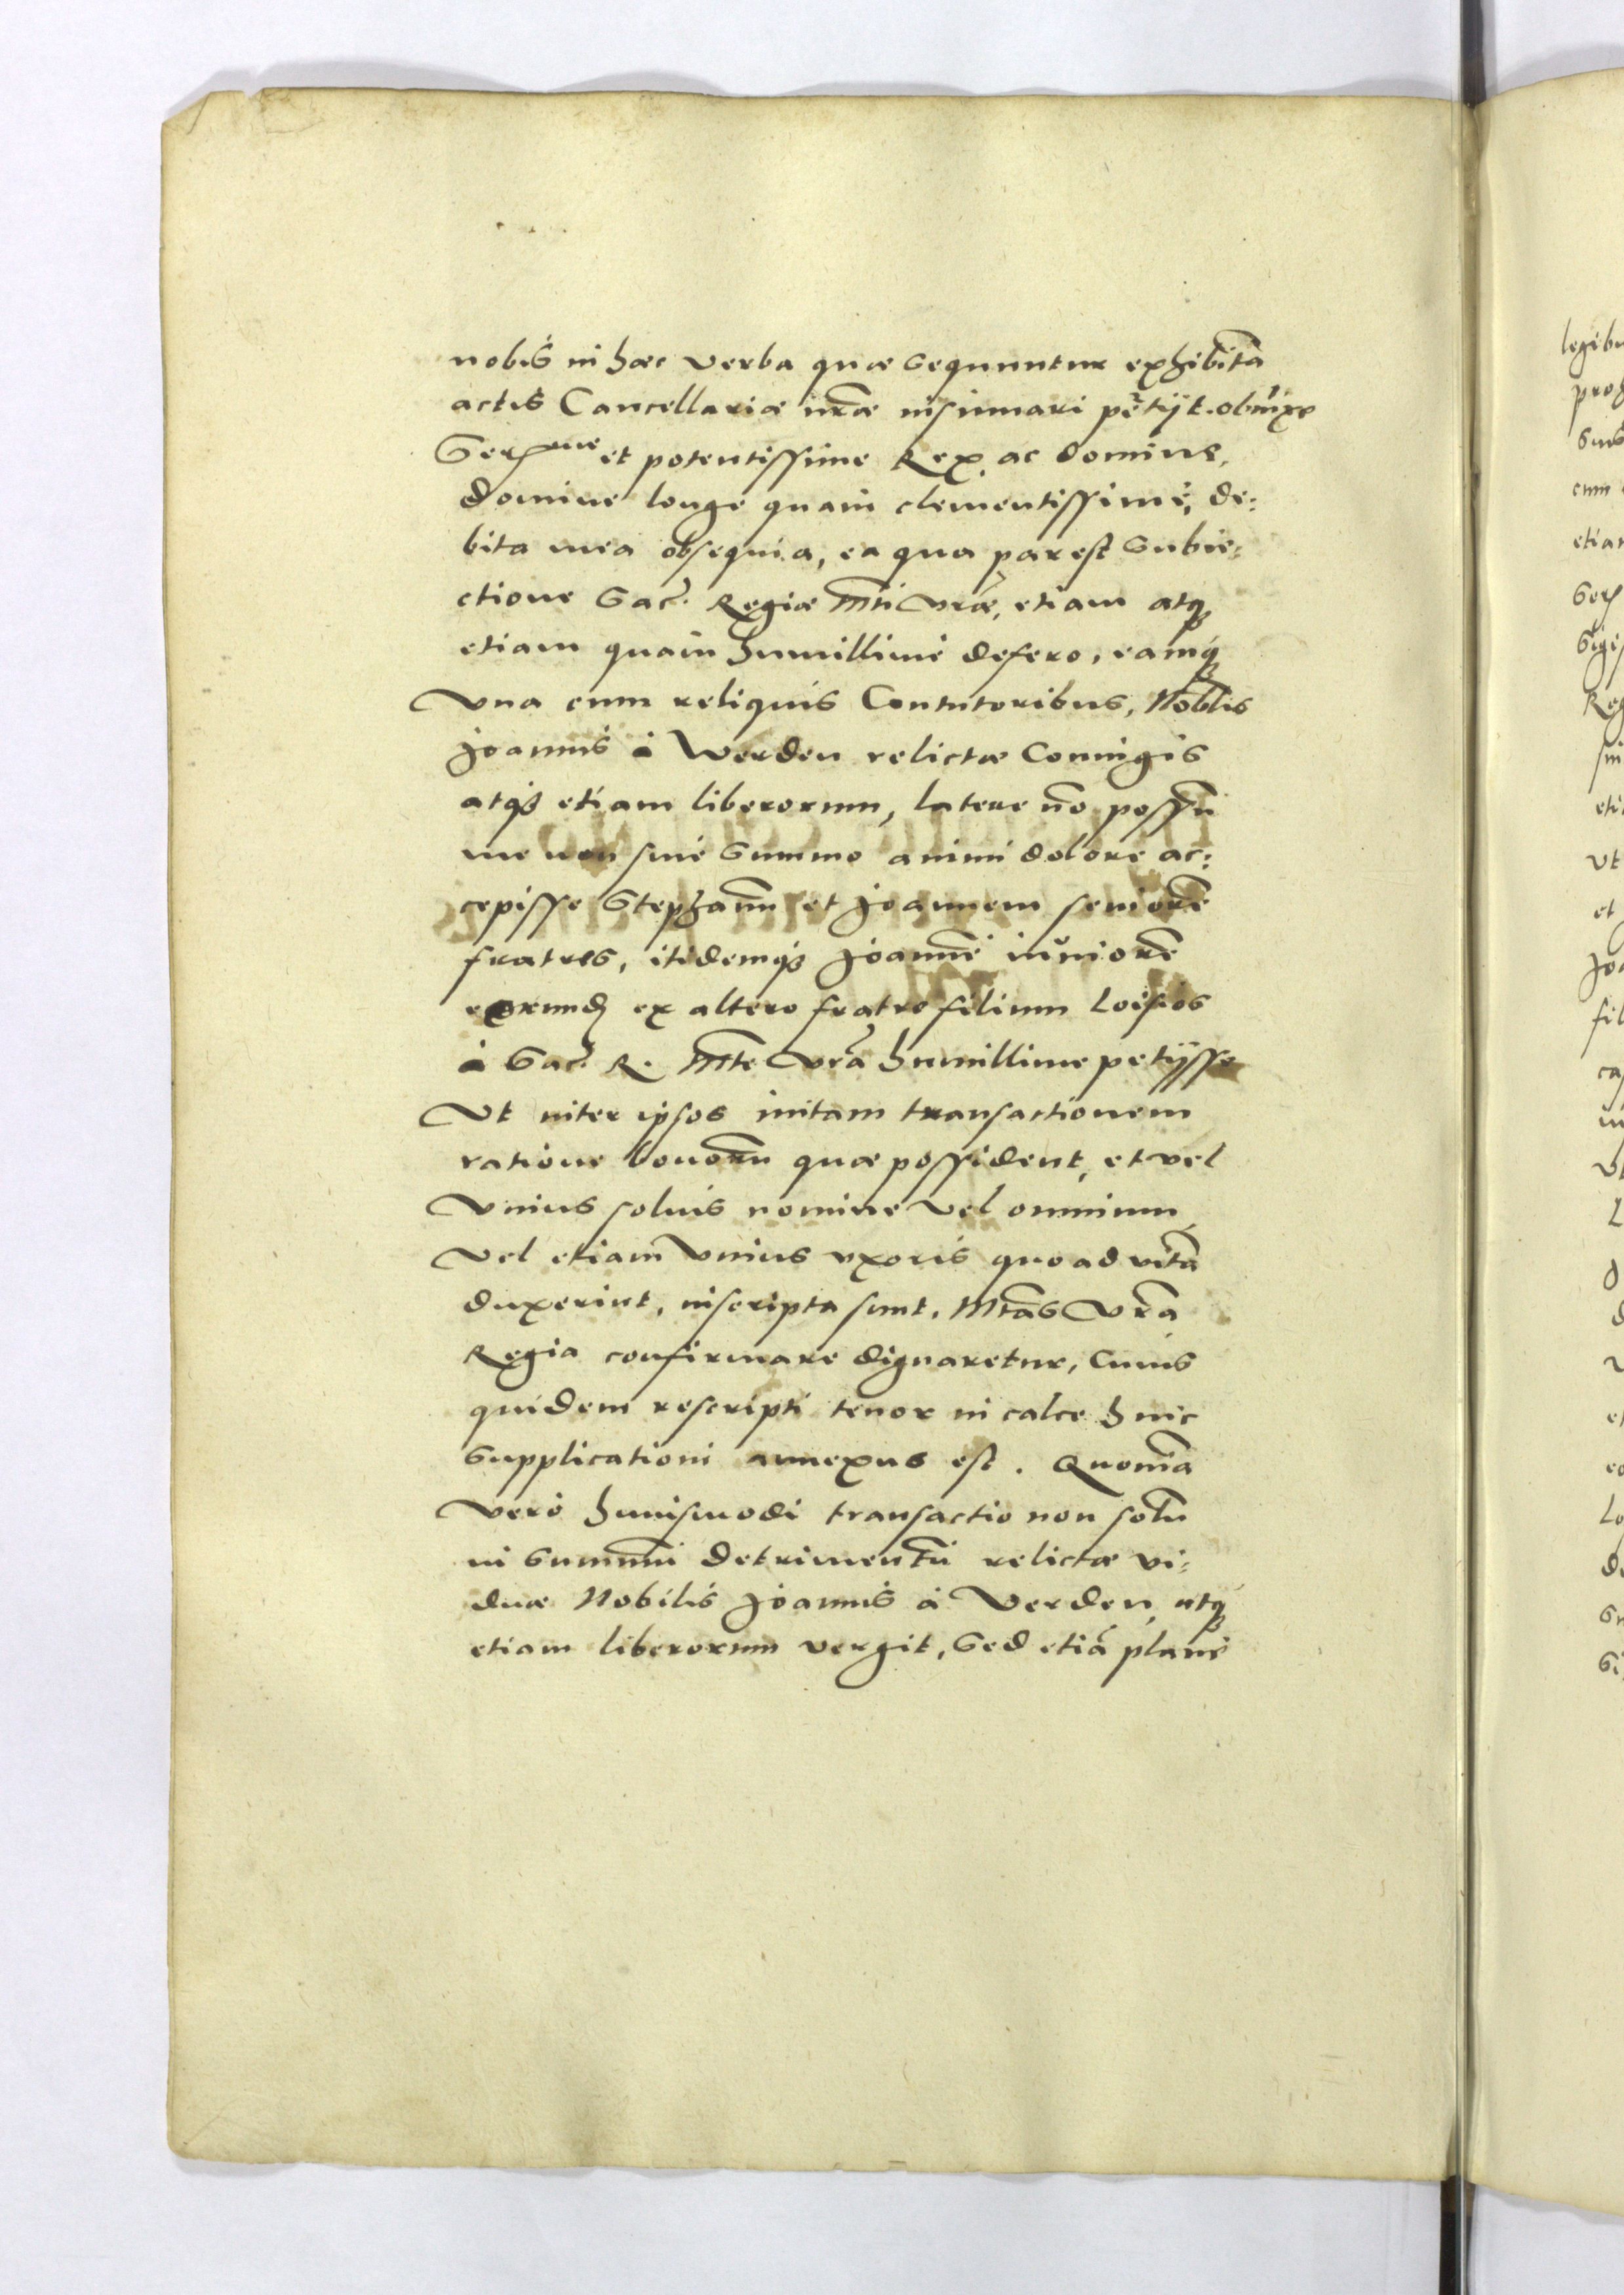 nobis in haec verba quae sequuntur exhibitã
actis Cancellariae nr̃ae insinuari petijt. obnixe
Serme et potentissime Rex ac domine,
domine longe quam clementissime, de:
bita mea obsequia, ea qua par est subie:
ctione Sac. Regiae Mti Vr̃ae, etiam atq
etiam quam humillime defero, eamq
Vna cum reliquis Contutoribus, Nobĩlis
Joannis à Werden relictae Coniugis
atq etiam liberorum, latere nõ possũ
me non sine summo animi dolore ac:
cepisse Stephanũ et Joannem seniorẽ
fratres, itidemq Joannẽ iuniorẽ
eorund ex altero fratre filium Loisios
à Sac. R. Mte Vr̃a humillime petijsse
Vt inter ipsos initam transactionem
ratione bonorũ quae possident, et vel
Vnius solius nomine vel omnium
Vel etiam Vnius vxoris quoad vitã
duxerint, inscripta sunt, Mtas Vr̃a
Regia confirmare dignaretur, Cuius
quidem rescripti tenor in calce huic
supplicationi annexus est. Quoniã
Vero huiusmodi transactio non solũ
in summũ detrimentũ relictae vi:
duae Nobilis Joannis à Verden, atq
etiam liberorum vergit, sed etiã plane
legibu
etiar
Reg
eti
vt
et
fil